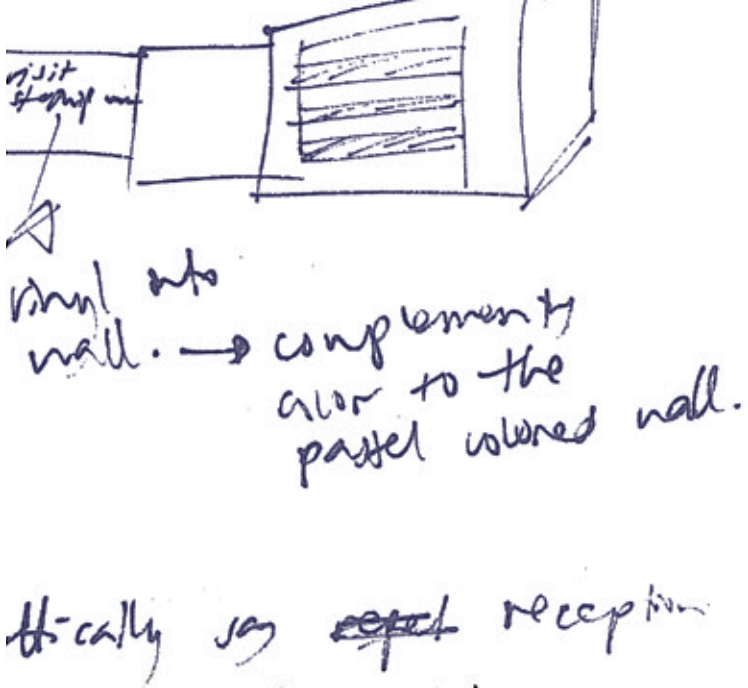 visit
vinyl into
wall. → complementy
color to the
pastel colored wall.
say reception